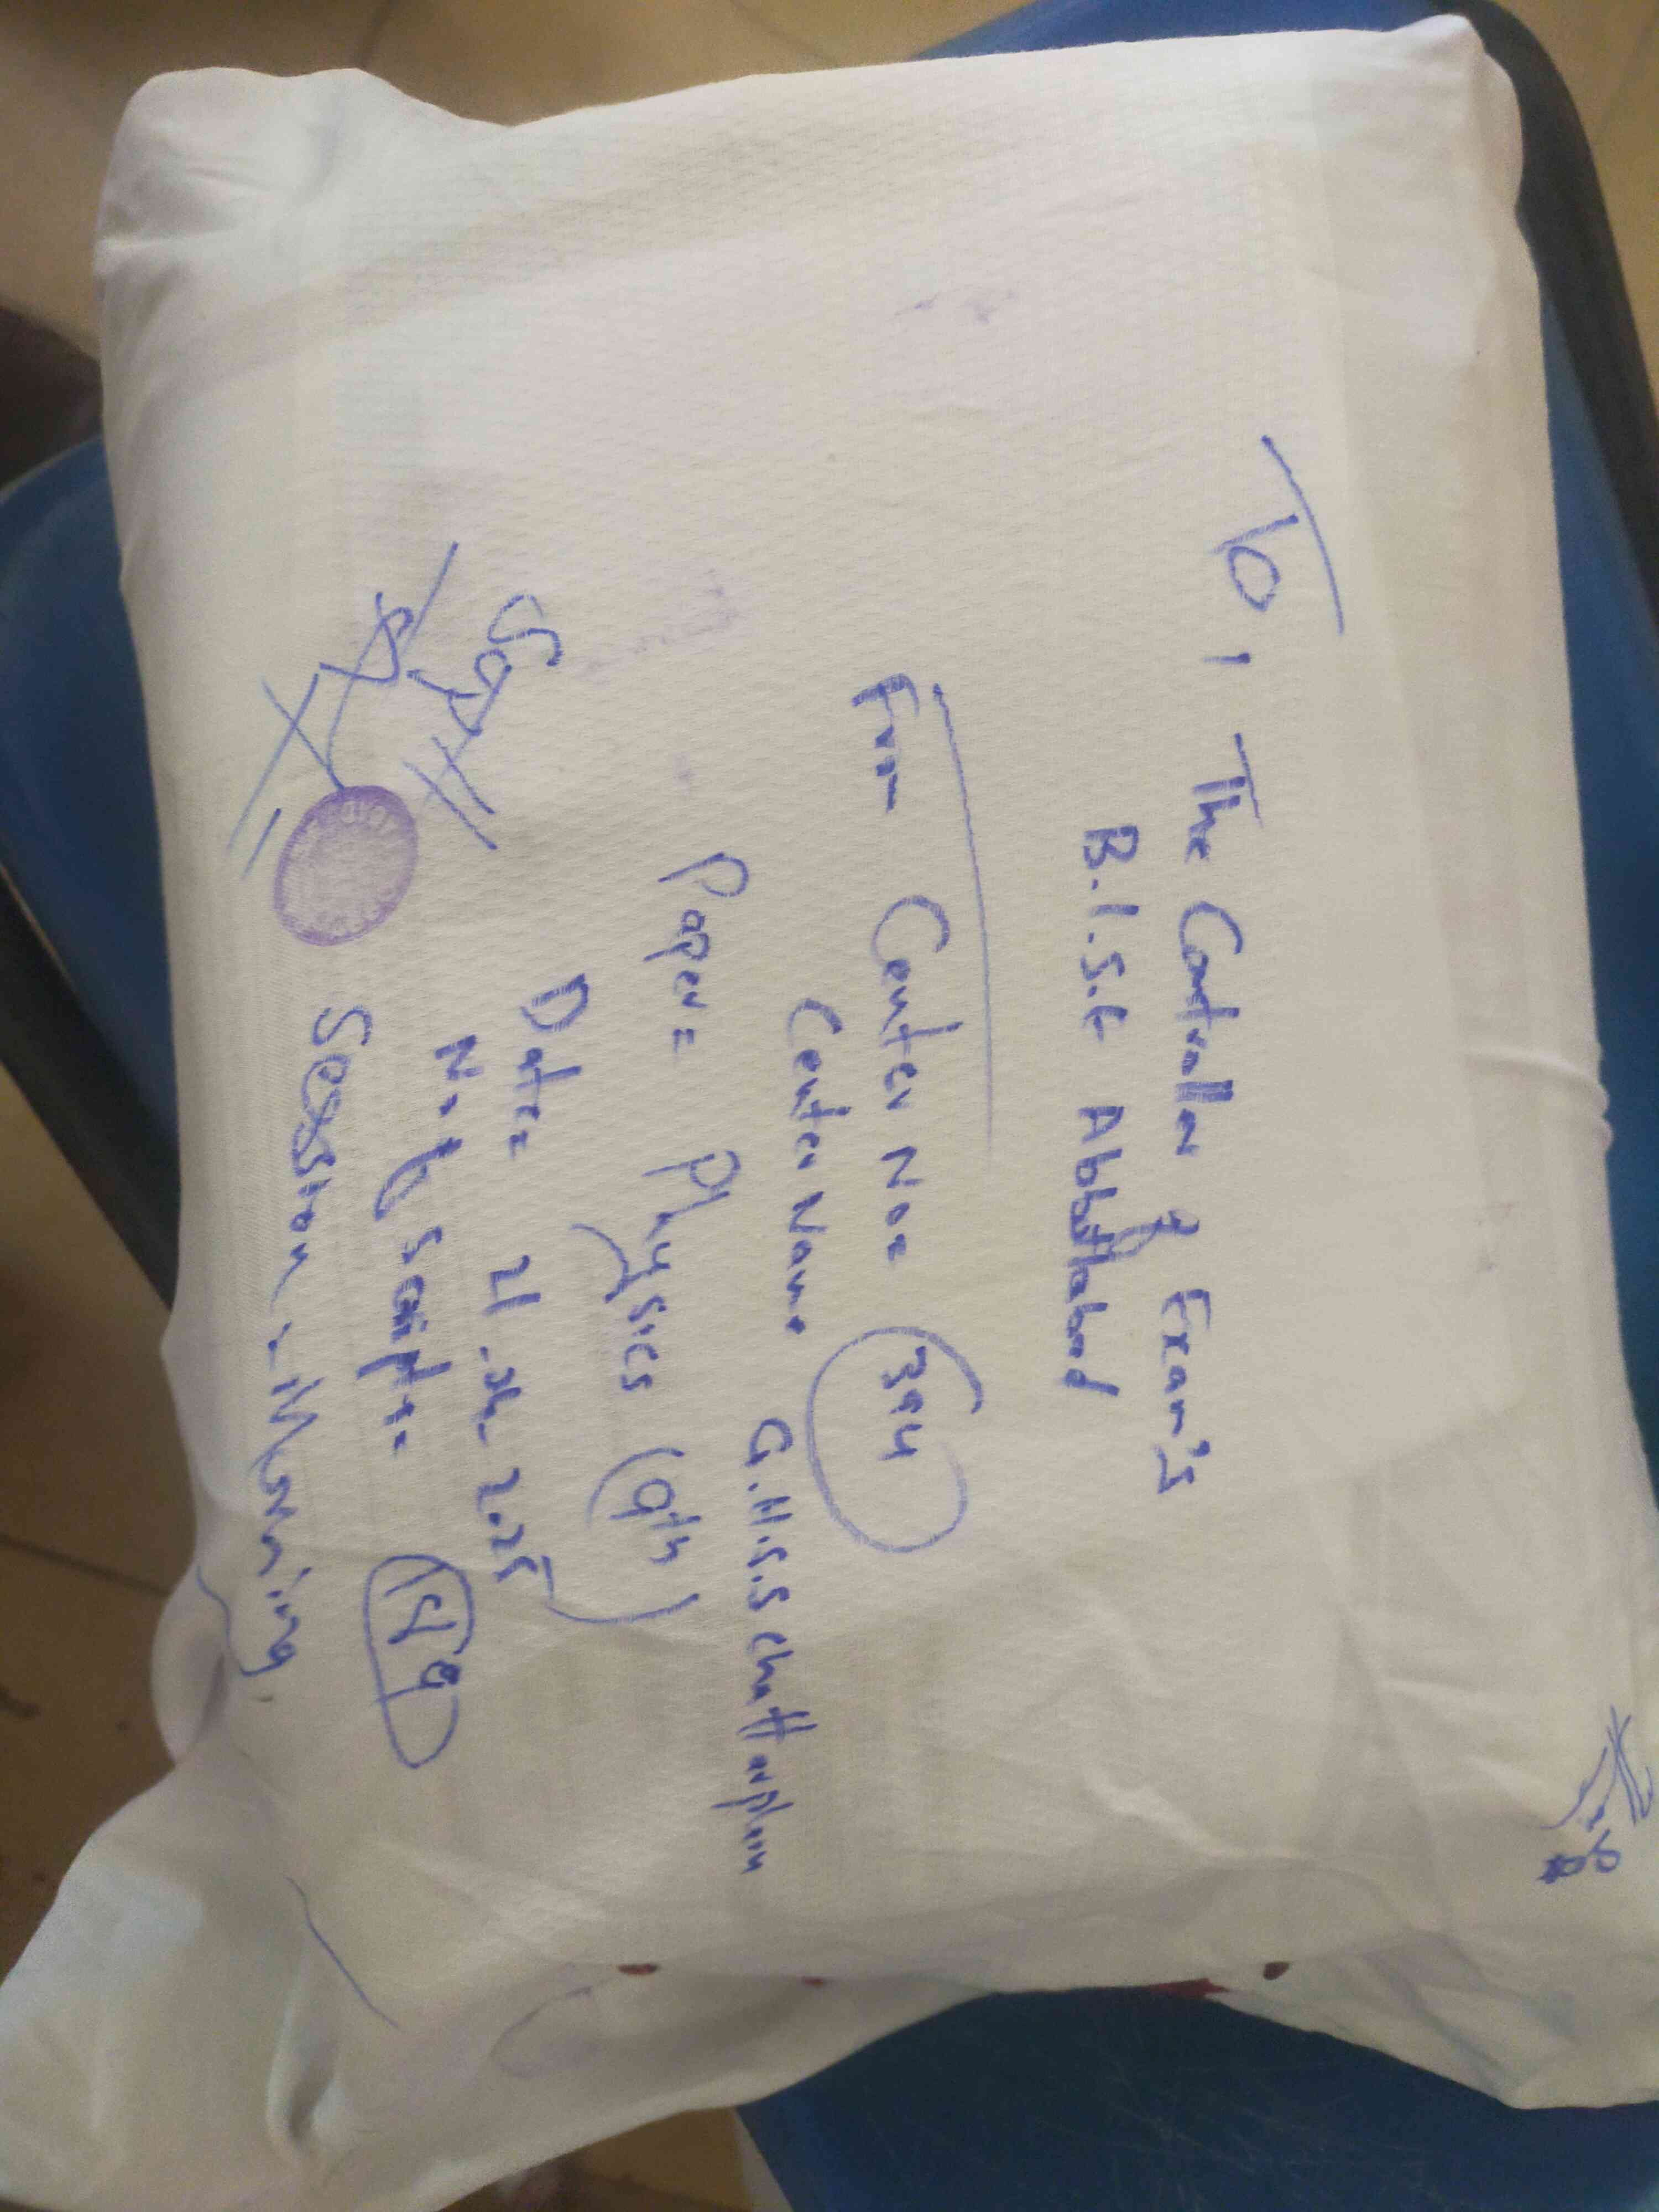 To, The Controller of Exam's
B.I.S.E Abbottabad
From Center No= 394
Center Name G.H.S.S Chatterplain
Paper= Physics (9th)
Date= 21.04.2025
No. of Scripts= 149
Session :- Morning